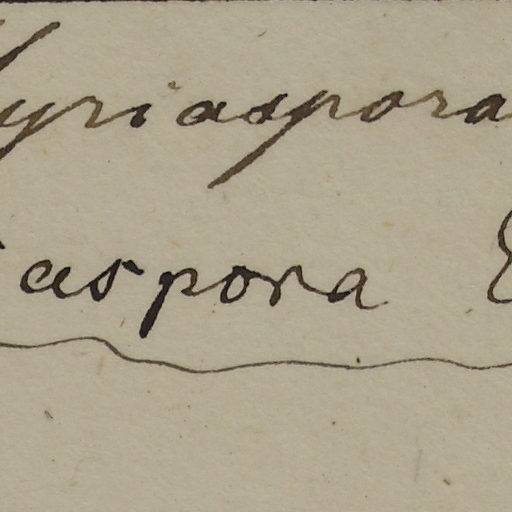 yriaspora
aspora